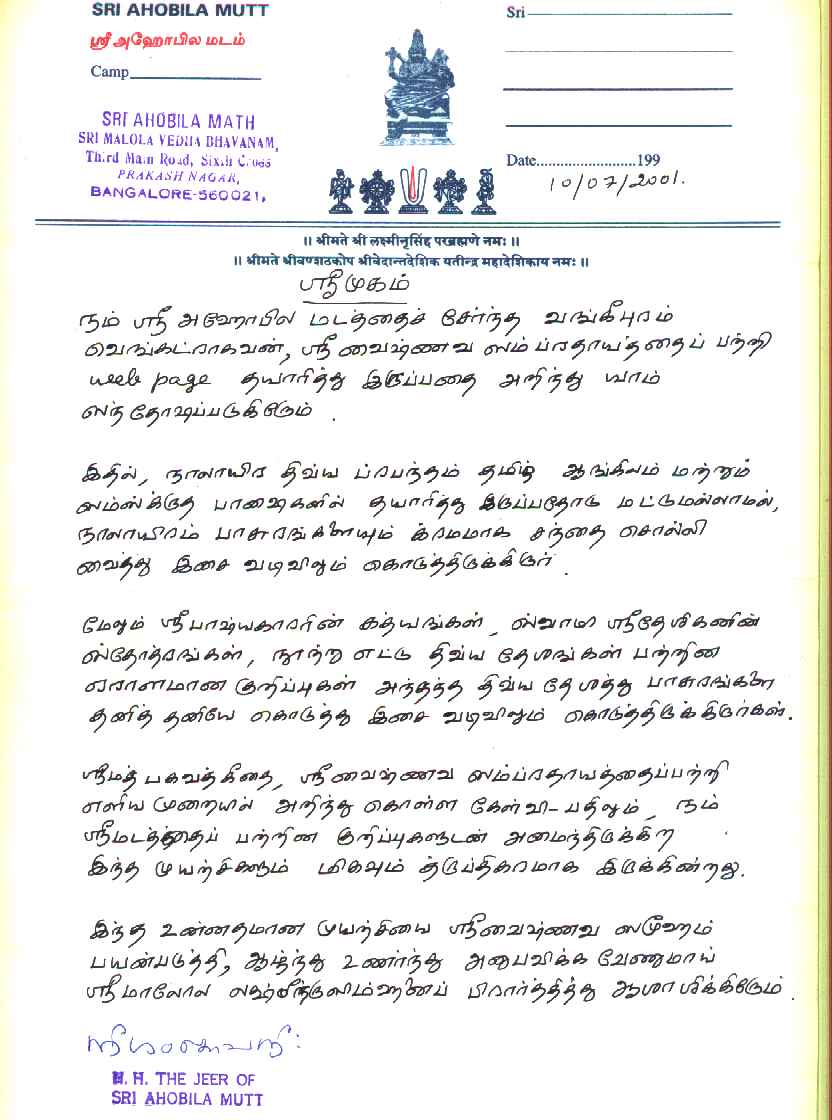 SRI AHOBILA MUTT
ஸ்ரீ அஹோபில மடம்
Camp
SRI AHOBILA MATH
SRI MALOLA VEDHA BHAVANAM,
Third Main Road, Sixth Cross
PRAKASH NAGAR,
BANGALORE-560021,
Sri
Date........................199
10/07/2001.
॥ श्रीमते श्री लक्ष्मीनृसिंह परब्रह्मणे नमः ॥
॥ श्रीमते श्रीवण्शठकोप श्रीवेदान्तदेशिक यतीन्द्र महादेशिकाय नमः ॥
ஸ்ரீமுகம்
நம் ஸ்ரீ அஹோபில மடத்தைச் சேர்ந்த வங்கீபுரம்
வெங்கட்ராகவன், ஸ்ரீ வைஷ்ணவ ஸம்ப்ரதாயத்தைப் பற்றி
web page தயாரித்து இருப்பதை அறிந்து யாம்
ஸந்தோஷப்படுகிறோம்.
இதில், நாலாயிர திவ்ய ப்ரபந்தம் தமிழ் ஆங்கிலம் மற்றும்
ஸம்ஸ்க்ருத பாஷைகளில் தயாரித்து இருப்பதோடு மட்டுமல்லாமல்,
நாலாயிரம் பாசுரங்களையும் க்ரமமாக சந்தை சொல்லி
வைத்து இசை வடிவிலும் கொடுத்திருக்கிறார்.
மேலும் ஸ்ரீபாஷ்யகாரரின் கத்யங்கள், ஸ்வாமி ஸ்ரீதேசிகனின்
ஸ்தோத்ரங்கள், நூற்று எட்டு திவ்ய தேசங்கள் பற்றின
ஏராளமான குறிப்புகள் அந்தந்த திவ்ய தேசத்து பாசுரங்களை
தனித் தனியே கொடுத்து இசை வடிவிலும் கொடுத்திருக்கிறார்கள்.
ஸ்ரீமத் பகவத்கீதை, ஸ்ரீ வைஷ்ணவ ஸம்ப்ரதாயத்தைப்பற்றி
எளிய முறையில் அறிந்து கொள்ள கேள்வி-பதிலும், நம்
ஸ்ரீமடத்தைப் பற்றின குறிப்புகளுடன் அமைந்திருக்கிற
இந்த முயற்சிகளும் மிகவும் த்ருப்திகரமாக இருக்கின்றது.
இந்த உன்னதமான முயற்சியை ஸ்ரீவைஷ்ணவ ஸமூஹம்
பயன்படுத்தி, ஆழ்ந்து உணர்ந்து அனுபவிக்க வேணுமாய்
ஸ்ரீமாலோல லக்ஷ்மீந்ருஸிம்ஹனைப் பிரார்த்தித்து ஆசாசிக்கிறோம்.
H. H. THE JEER OF
SRI AHOBILA MUTT